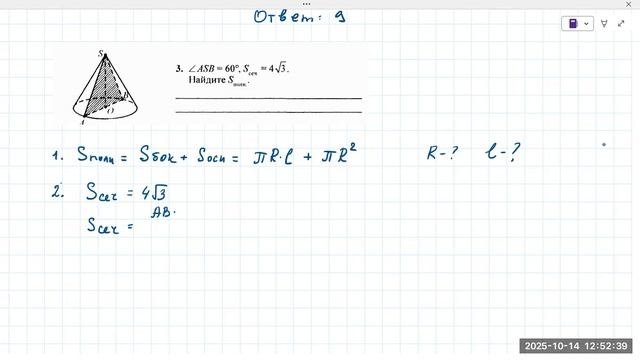 Ответ: 9
S
A
B
O
3. ∠ASB = 60°, Sсеч = 4√3.
Найдите Sполн.
1. Sполн = Sбок + Sосн = πR·l + πR² R-? l-?
2. Sсеч = 4√3
AB·
Sсеч =
2025-10-14 12:52:39